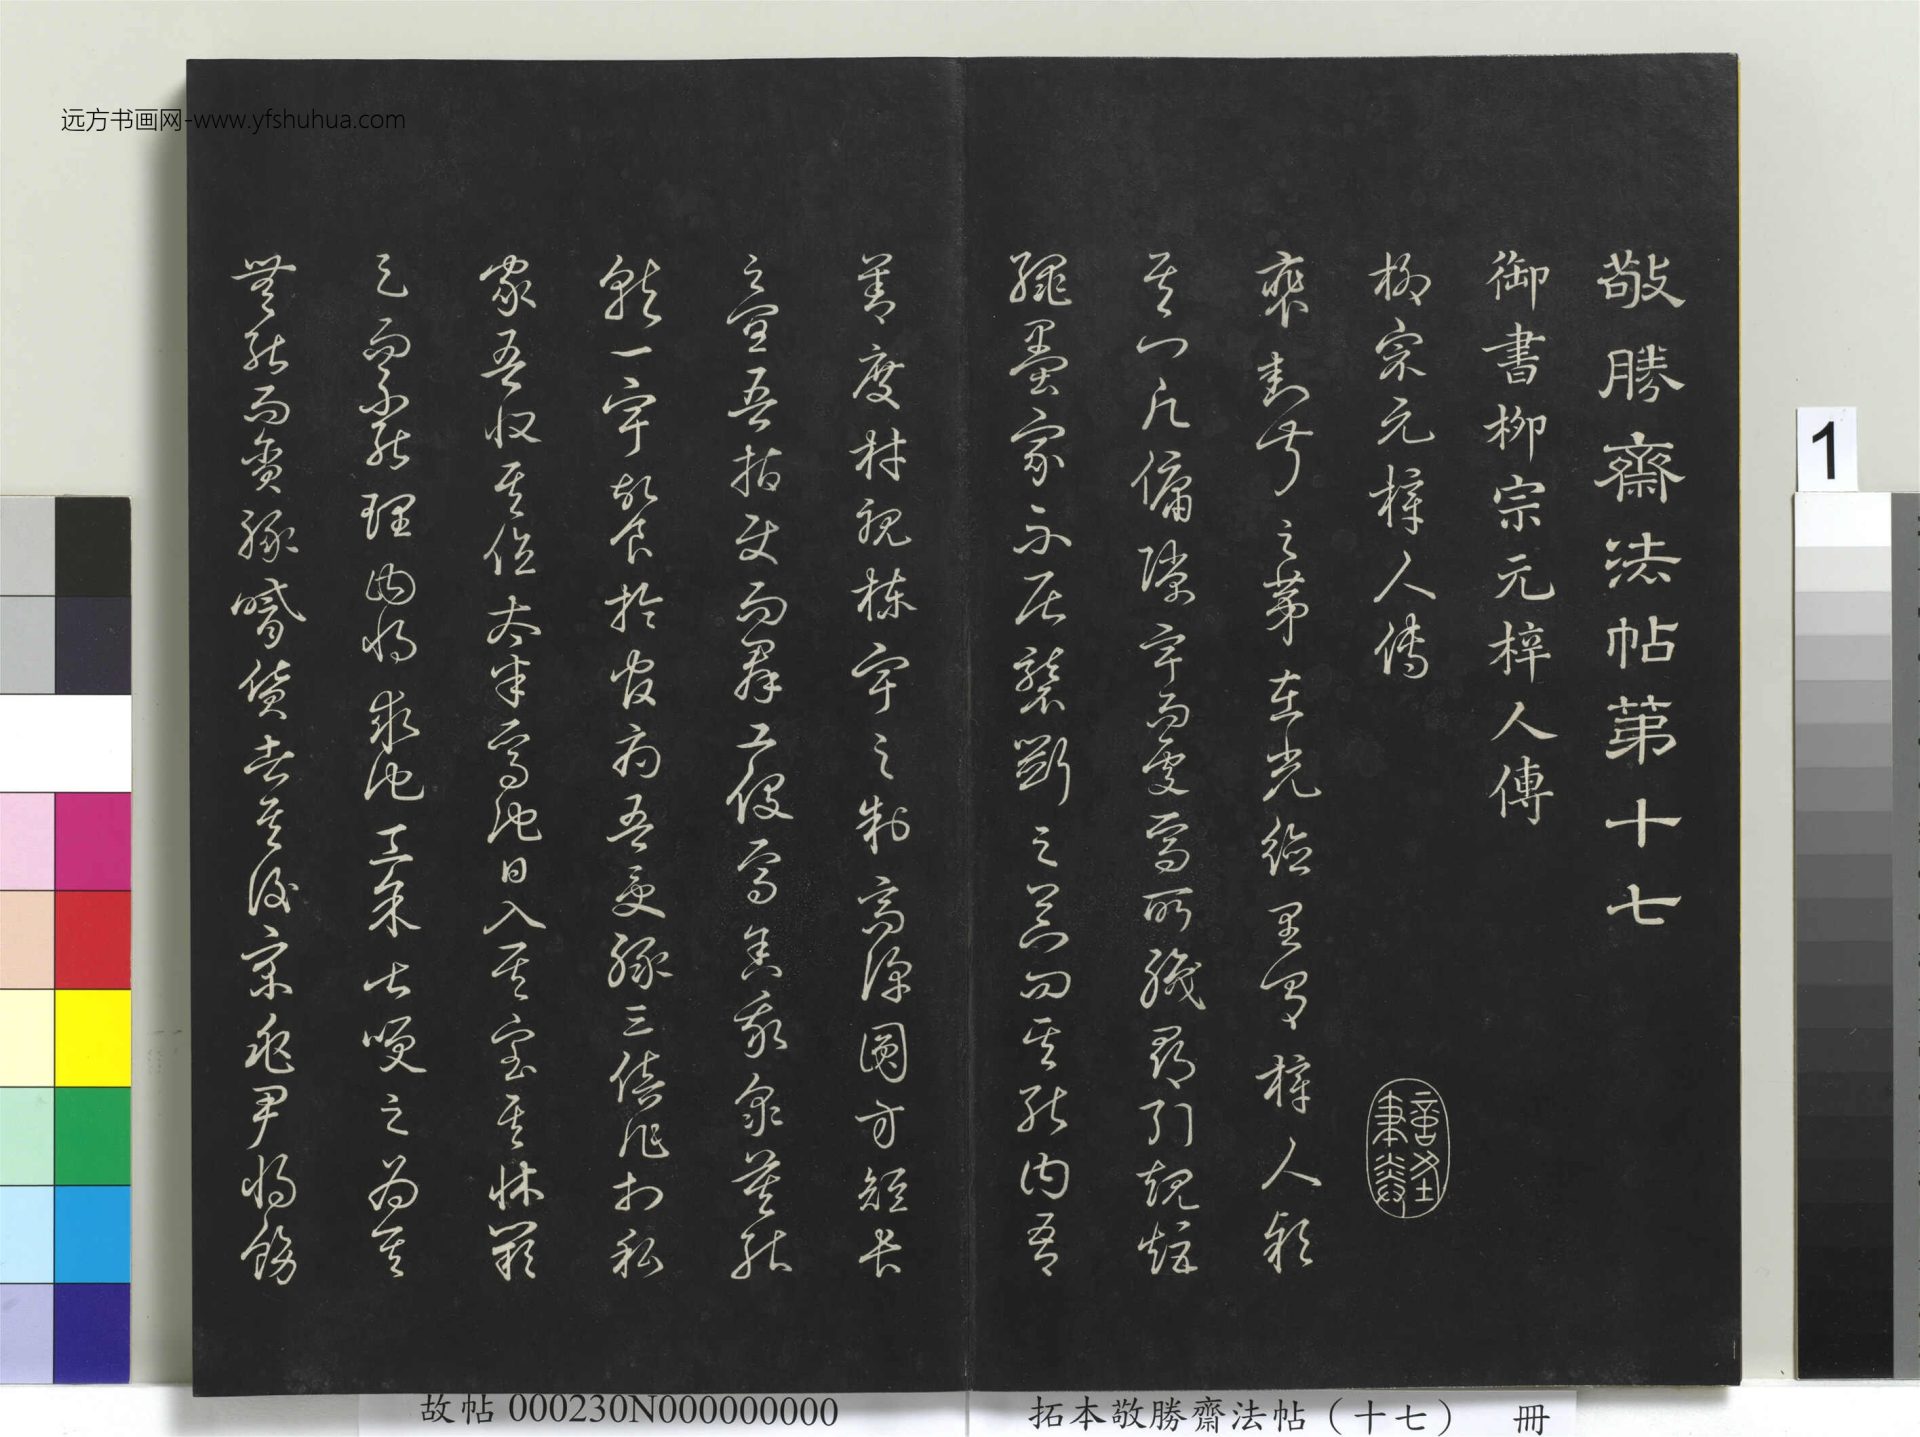 敬勝齋法帖第十七
御書柳宗元梓人傳
柳宗元梓人傳
裴封叔之第在光德里有梓人款
其門願傭隙宇而處焉所職尋引規矩
繩墨家不居礱斲之器問其能曰吾
善度材視棟宇之制高深圓方短長
之宜吾指使而群工役焉舍我衆莫能
就一宇故食於官府吾受祿三倍作於私
家吾收其値太半焉他日入其室其牀闕
足而不能理曰將求他工余甚笑之謂其
無能而貪祿嗜貨者其後京兆尹將飾
远方书画网-www.yfshuhua.com
1
故帖 000230N000000000
拓本敬勝齋法帖（十七） 冊